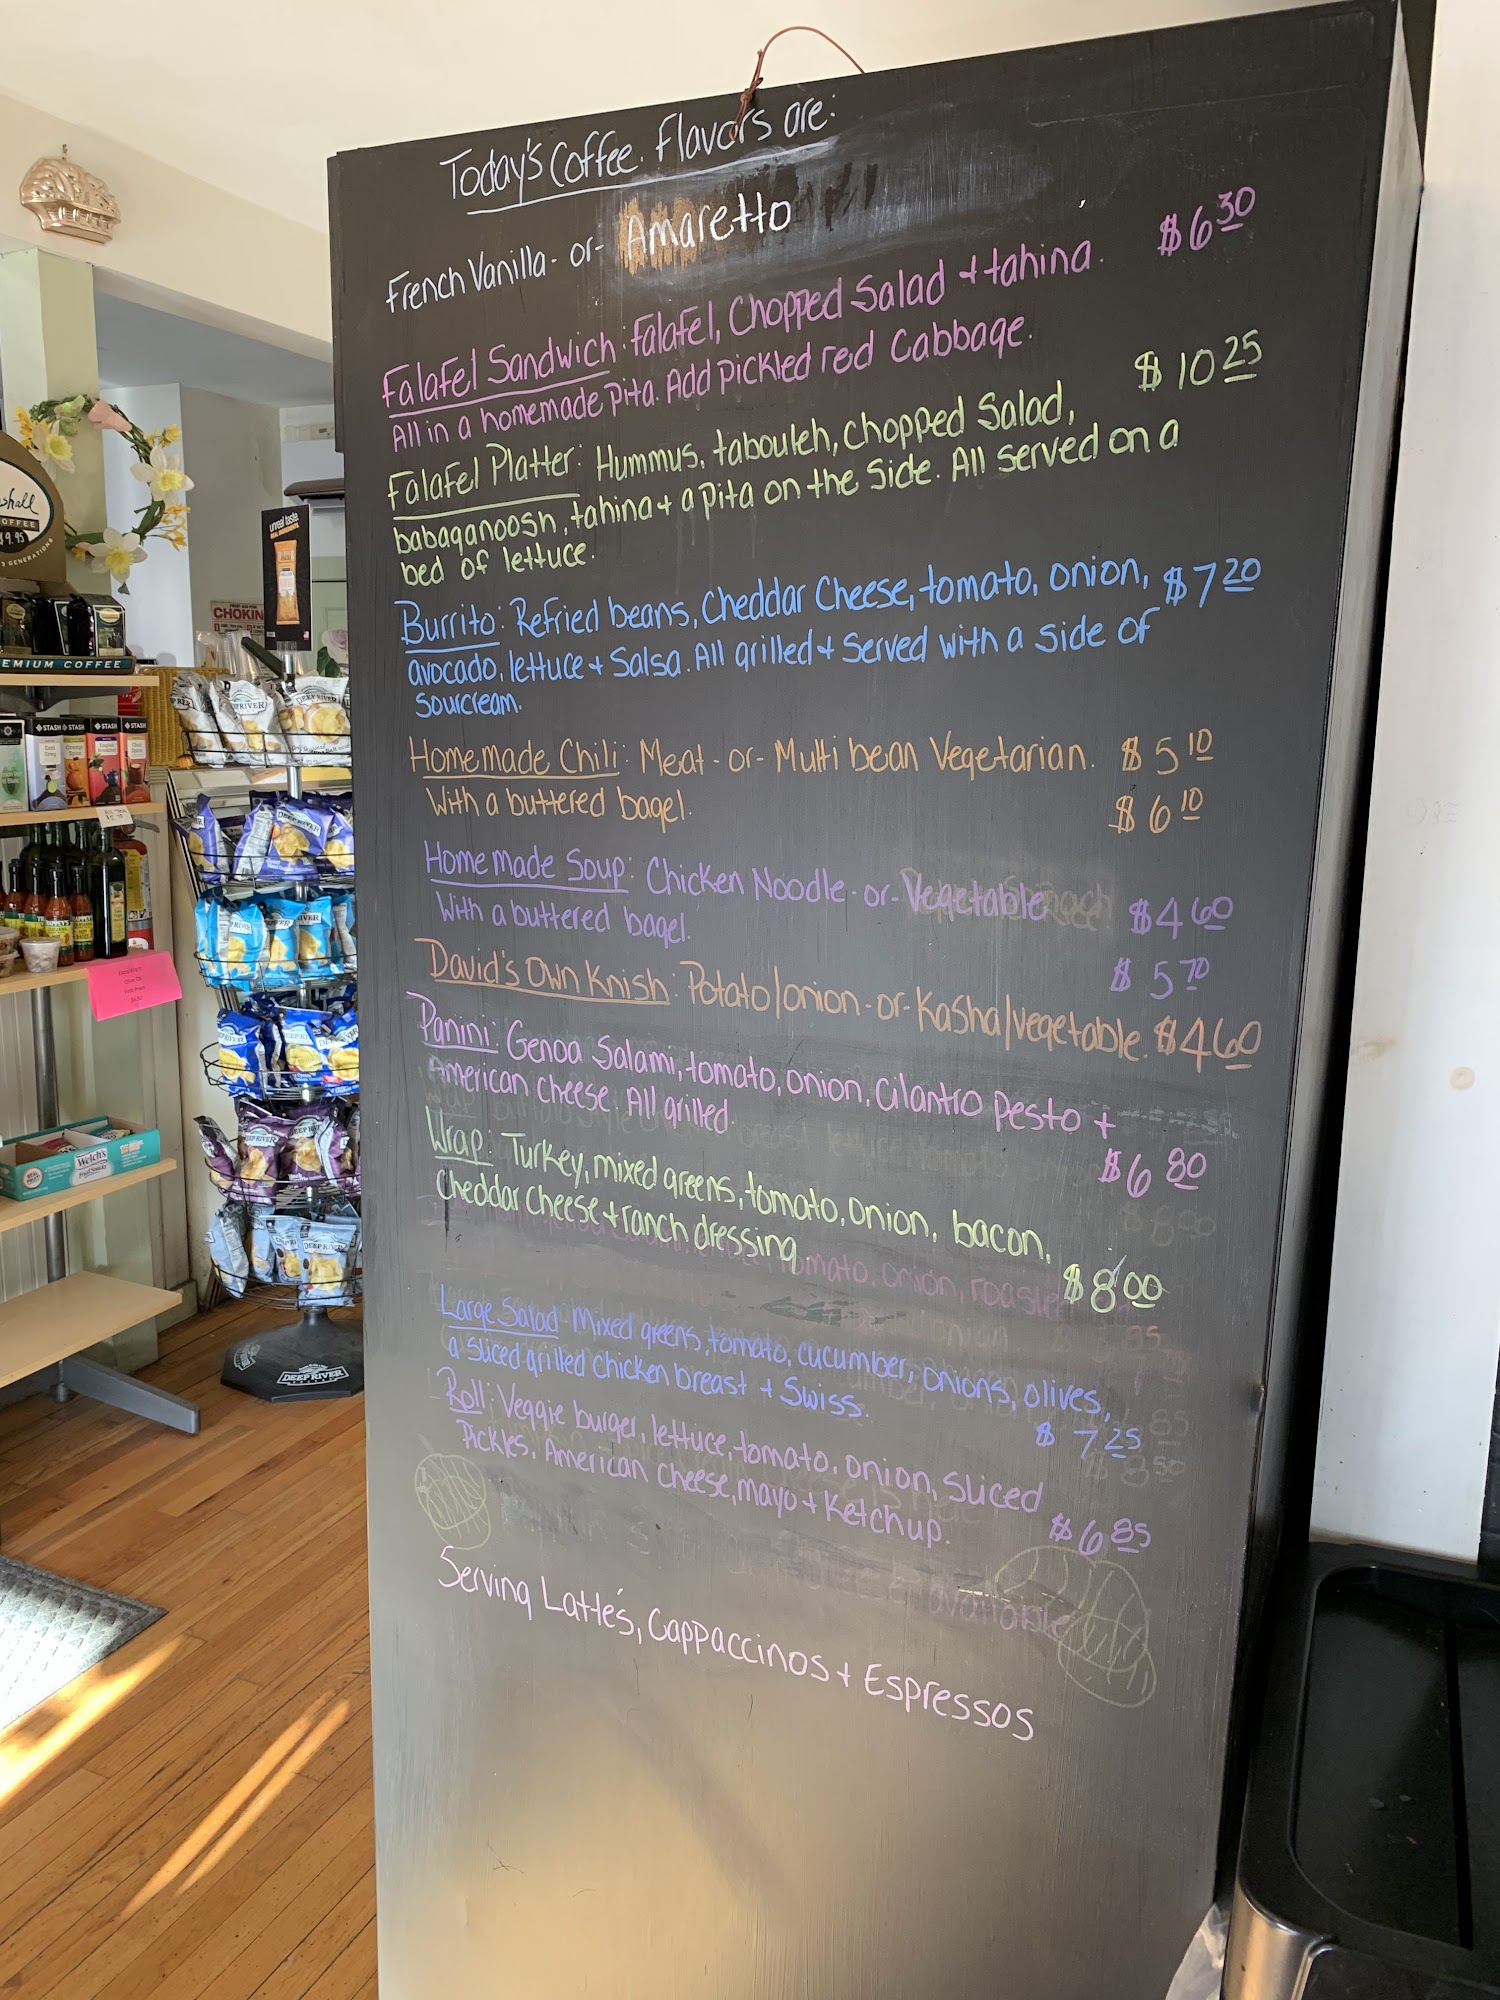 Today's Coffee Flavors are:
French Vanilla - or - Amaretto
Falafel Sandwich: Falafel, Chopped Salad + tahina. $6 30
All in a homemade pita. Add pickled red Cabbage.
Falafel Platter: Hummus, tabouleh, chopped Salad, $10 25
babaganoosh, tahina + a pita on the side. All served on a
bed of lettuce.
Burrito: Refried beans, Cheddar Cheese, tomato, onion, $7 20
avocado, lettuce + Salsa. All grilled + Served with a side of
sourcream.
Homemade Chili: Meat - or - Multi bean Vegetarian. $5 10
With a buttered bagel. $6 10
Homemade Soup: Chicken Noodle - or - Vegetable $4 60
With a buttered bagel. $5 70
David's Own Knish: Potato/onion - or - Kasha/vegetable. $4 60
Panini: Genoa Salami, tomato, onion, Cilantro pesto +
American cheese. All grilled. $6 80
Wrap: Turkey, mixed greens, tomato, onion, bacon,
Cheddar Cheese + ranch dressing $8 00
Large Salad - Mixed greens, tomato, cucumber, onions, olives,
a sliced grilled chicken breast + Swiss. $7 25
Roll: Veggie burger, lettuce, tomato, onion, sliced
Pickles, American cheese, mayo + Ketchup. $6 85
Serving Latte's, Cappaccinos + Espressos
COFFEE
$9.95
3 GENERATIONS
EMIUM COFFEE
unreal taste.
CHOKIN
STASH
STASH
STASH
DEEP RIVER
DEEP RIVER
DEEP RIVER
DEEP RIVER
DEEP RIVER
Welch's
DEEP RIVER